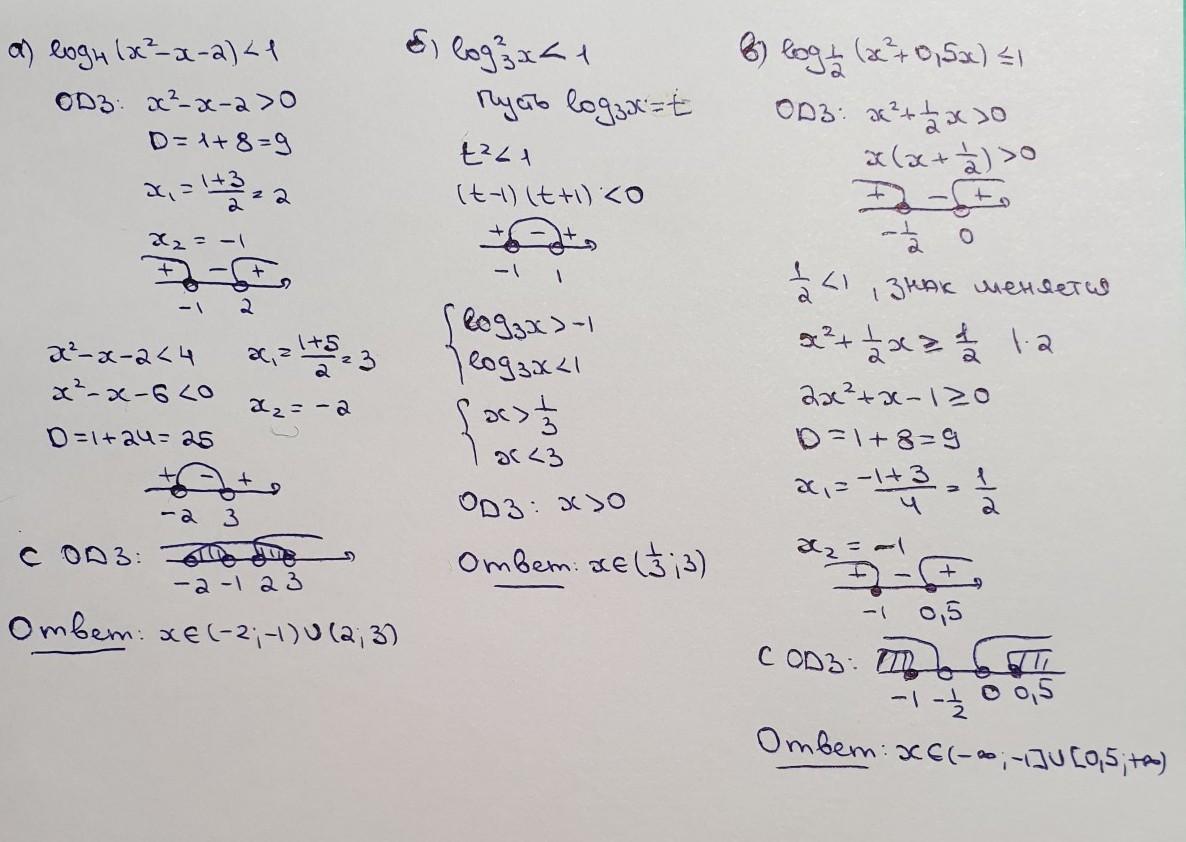 а) log₄(x²-x-2)<1
ОДЗ: x²-x-2>0
D=1+8=9
x₁=(1+3)/2=2
x₂=-1
+ - +
-1 2
x²-x-2<4 x₁=(1+5)/2=3
x²-x-6<0 x₂=-2
D=1+24=25
+ - +
-2 3
С ОДЗ:
-2 -1 2 3
Ответ: x∈(-2;-1)∪(2;3)
б) log₃²x<1
Пусть log₃x=t
t²<1
(t-1)(t+1)<0
+ - +
-1 1
{log₃x>-1
log₃x<1
{x>1/3
x<3
ОДЗ: x>0
Ответ: x∈(1/3;3)
в) log_1/2(x²+0,5x)≤1
ОДЗ: x²+1/2x>0
x(x+1/2)>0
+ - +
-1/2 0
1/2<1, знак меняется
x²+1/2x≥1/2 |·2
2x²+x-1≥0
D=1+8=9
x₁=(-1+3)/4=1/2
x₂=-1
+ - +
-1 0,5
С ОДЗ:
-1 -1/2 0 0,5
Ответ: x∈(-∞;-1]∪[0,5;+∞)